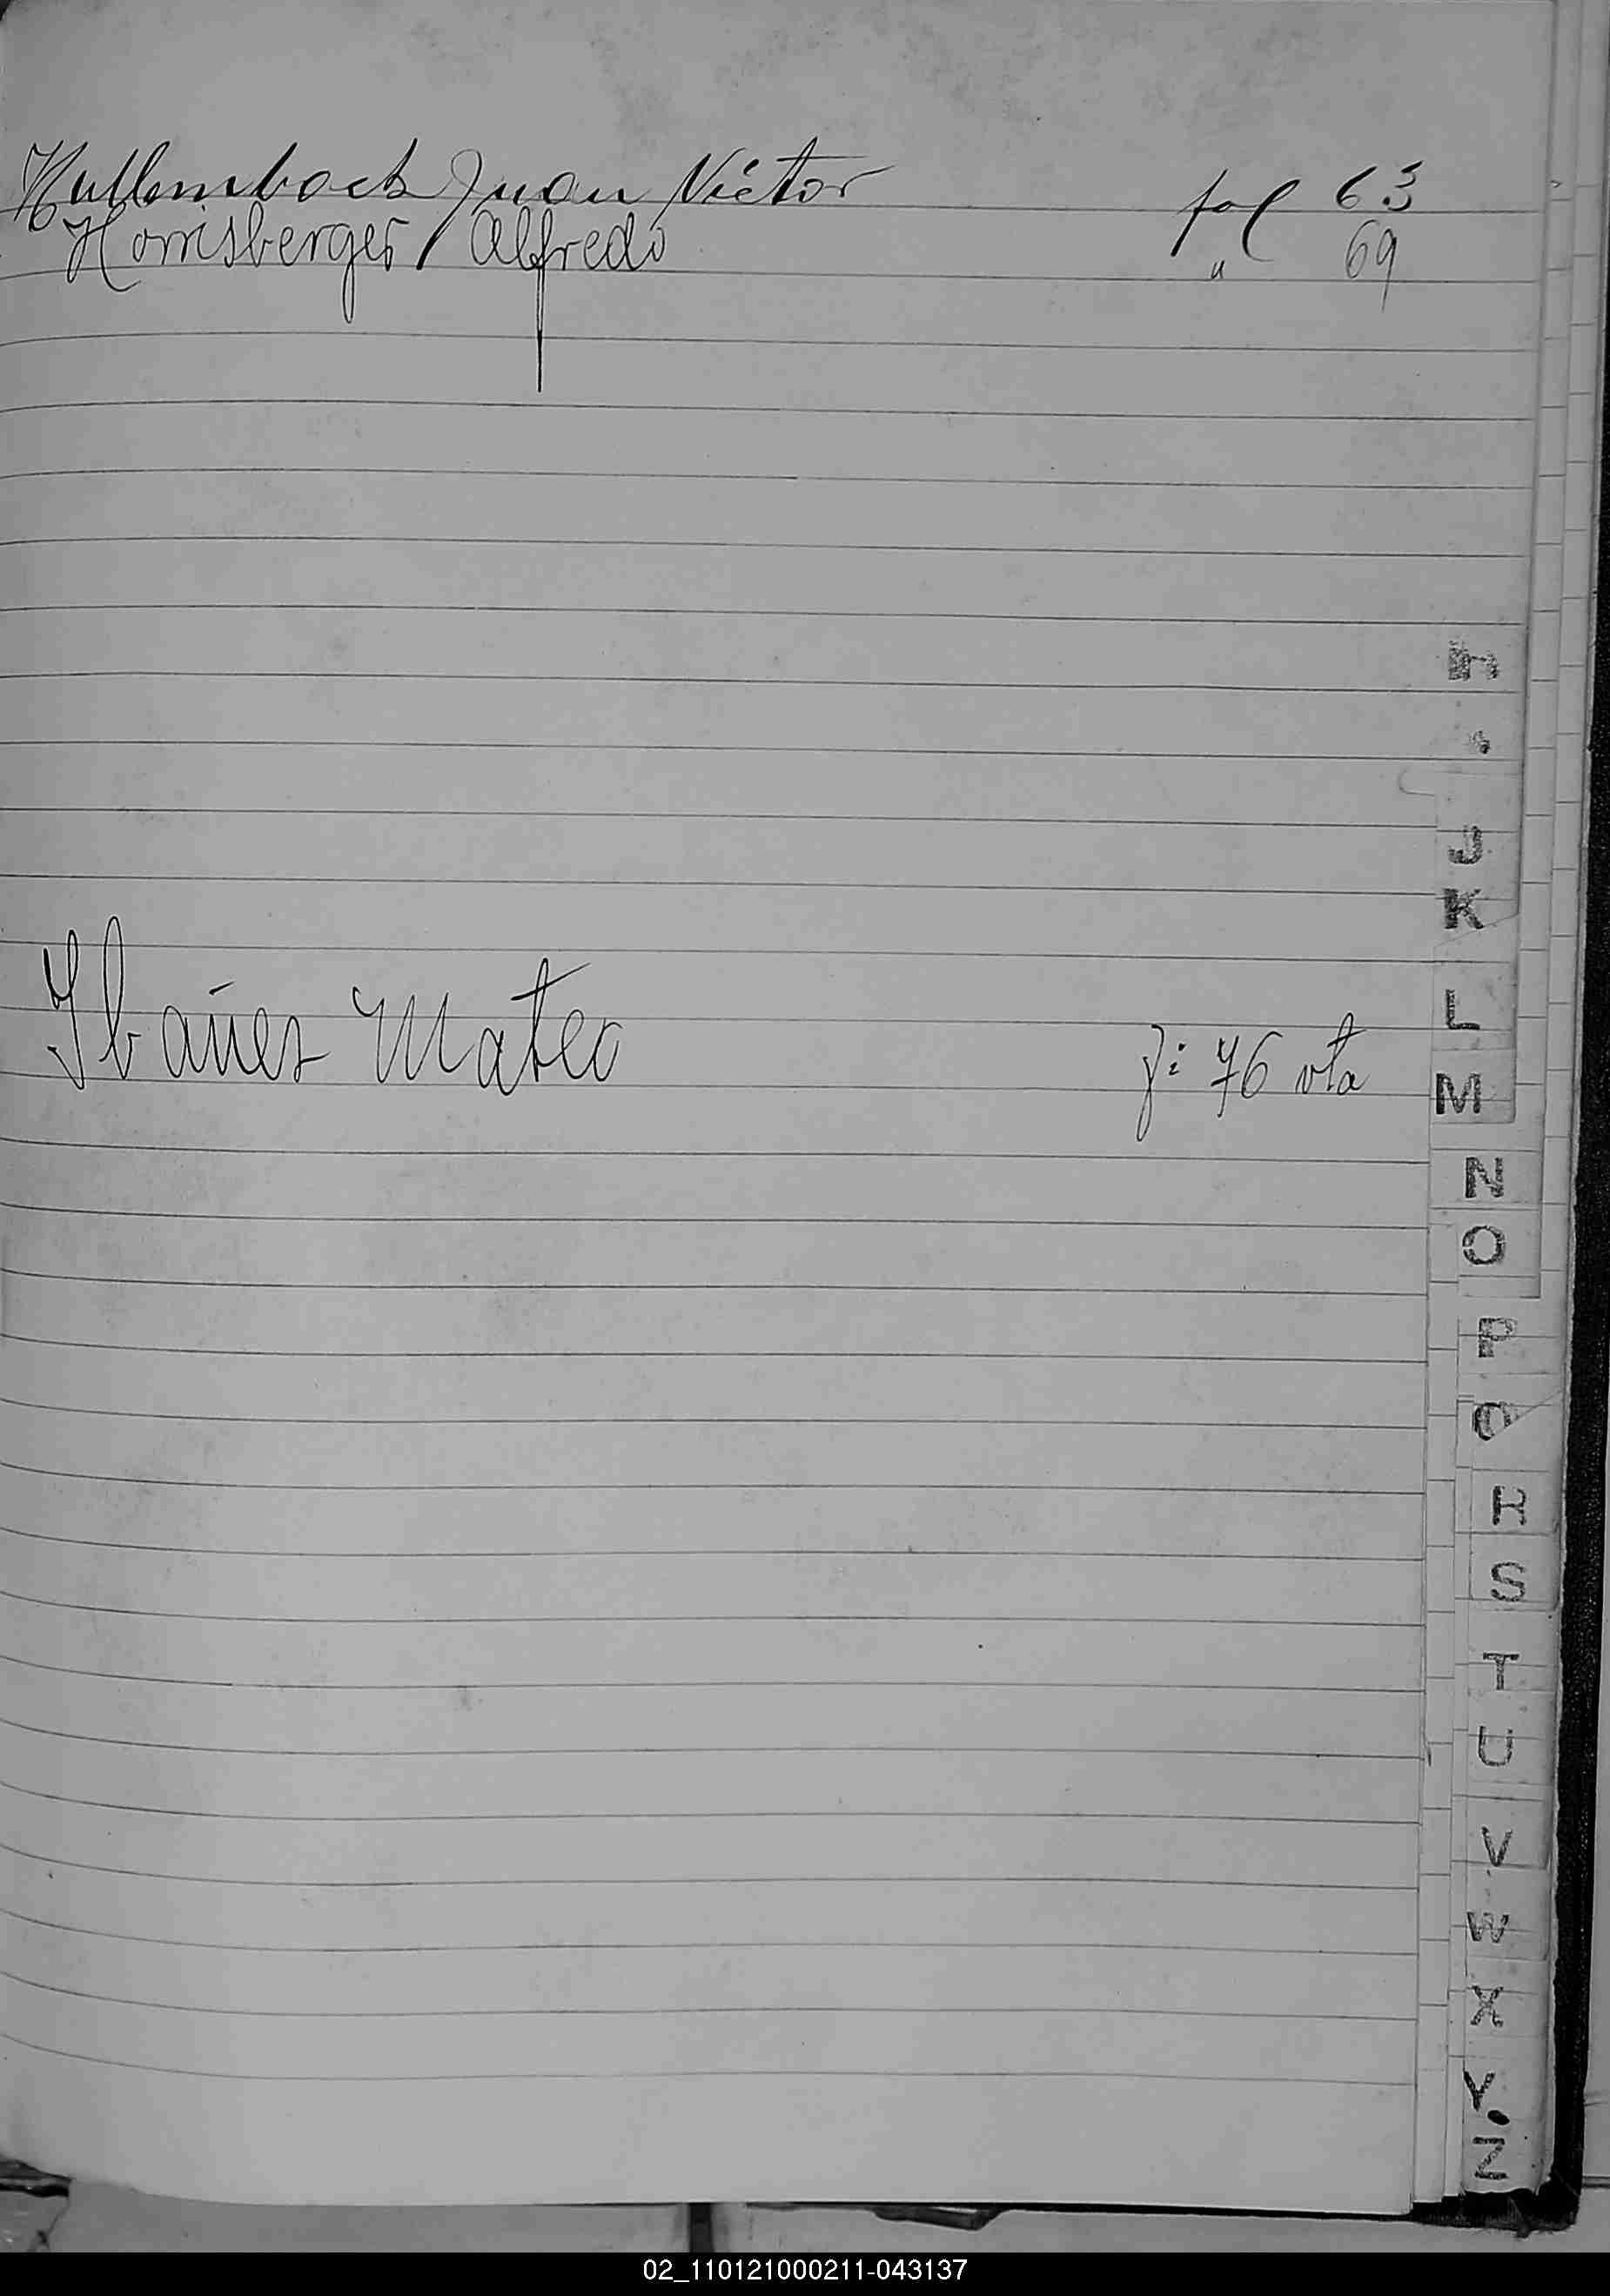 Hullembock Juan Victor fol 63
Horrisberger Alfredo " 69
Ibañes Mateo f: 76 vta
H
J
K
L
M
N
O
P
Q
R
S
T
U
V
W
X
Y.
Z
02_110121000211-043137